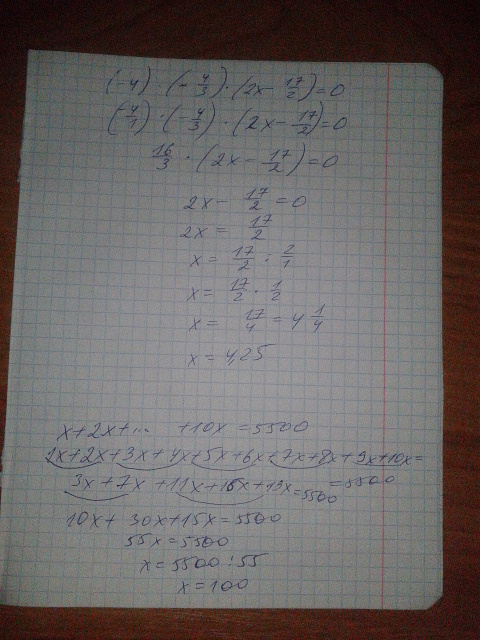 (-4) · (-4/3) · (2x - 17/2) = 0
(-4/1) · (-4/3) · (2x - 17/2) = 0
16/3 · (2x - 17/2) = 0
2x - 17/2 = 0
2x = 17/2
x = 17/2 : 2/1
x = 17/2 · 1/2
x = 17/4 = 4 1/4
x = 4,25
x+2x+... +10x = 5500
1x+2x+3x+4x+5x+6x+7x+8x+9x+10x=
=5500
3x+7x+11x+15x+19x=5500
10x+30x+15x=5500
55x=5500
x=5500:55
x=100